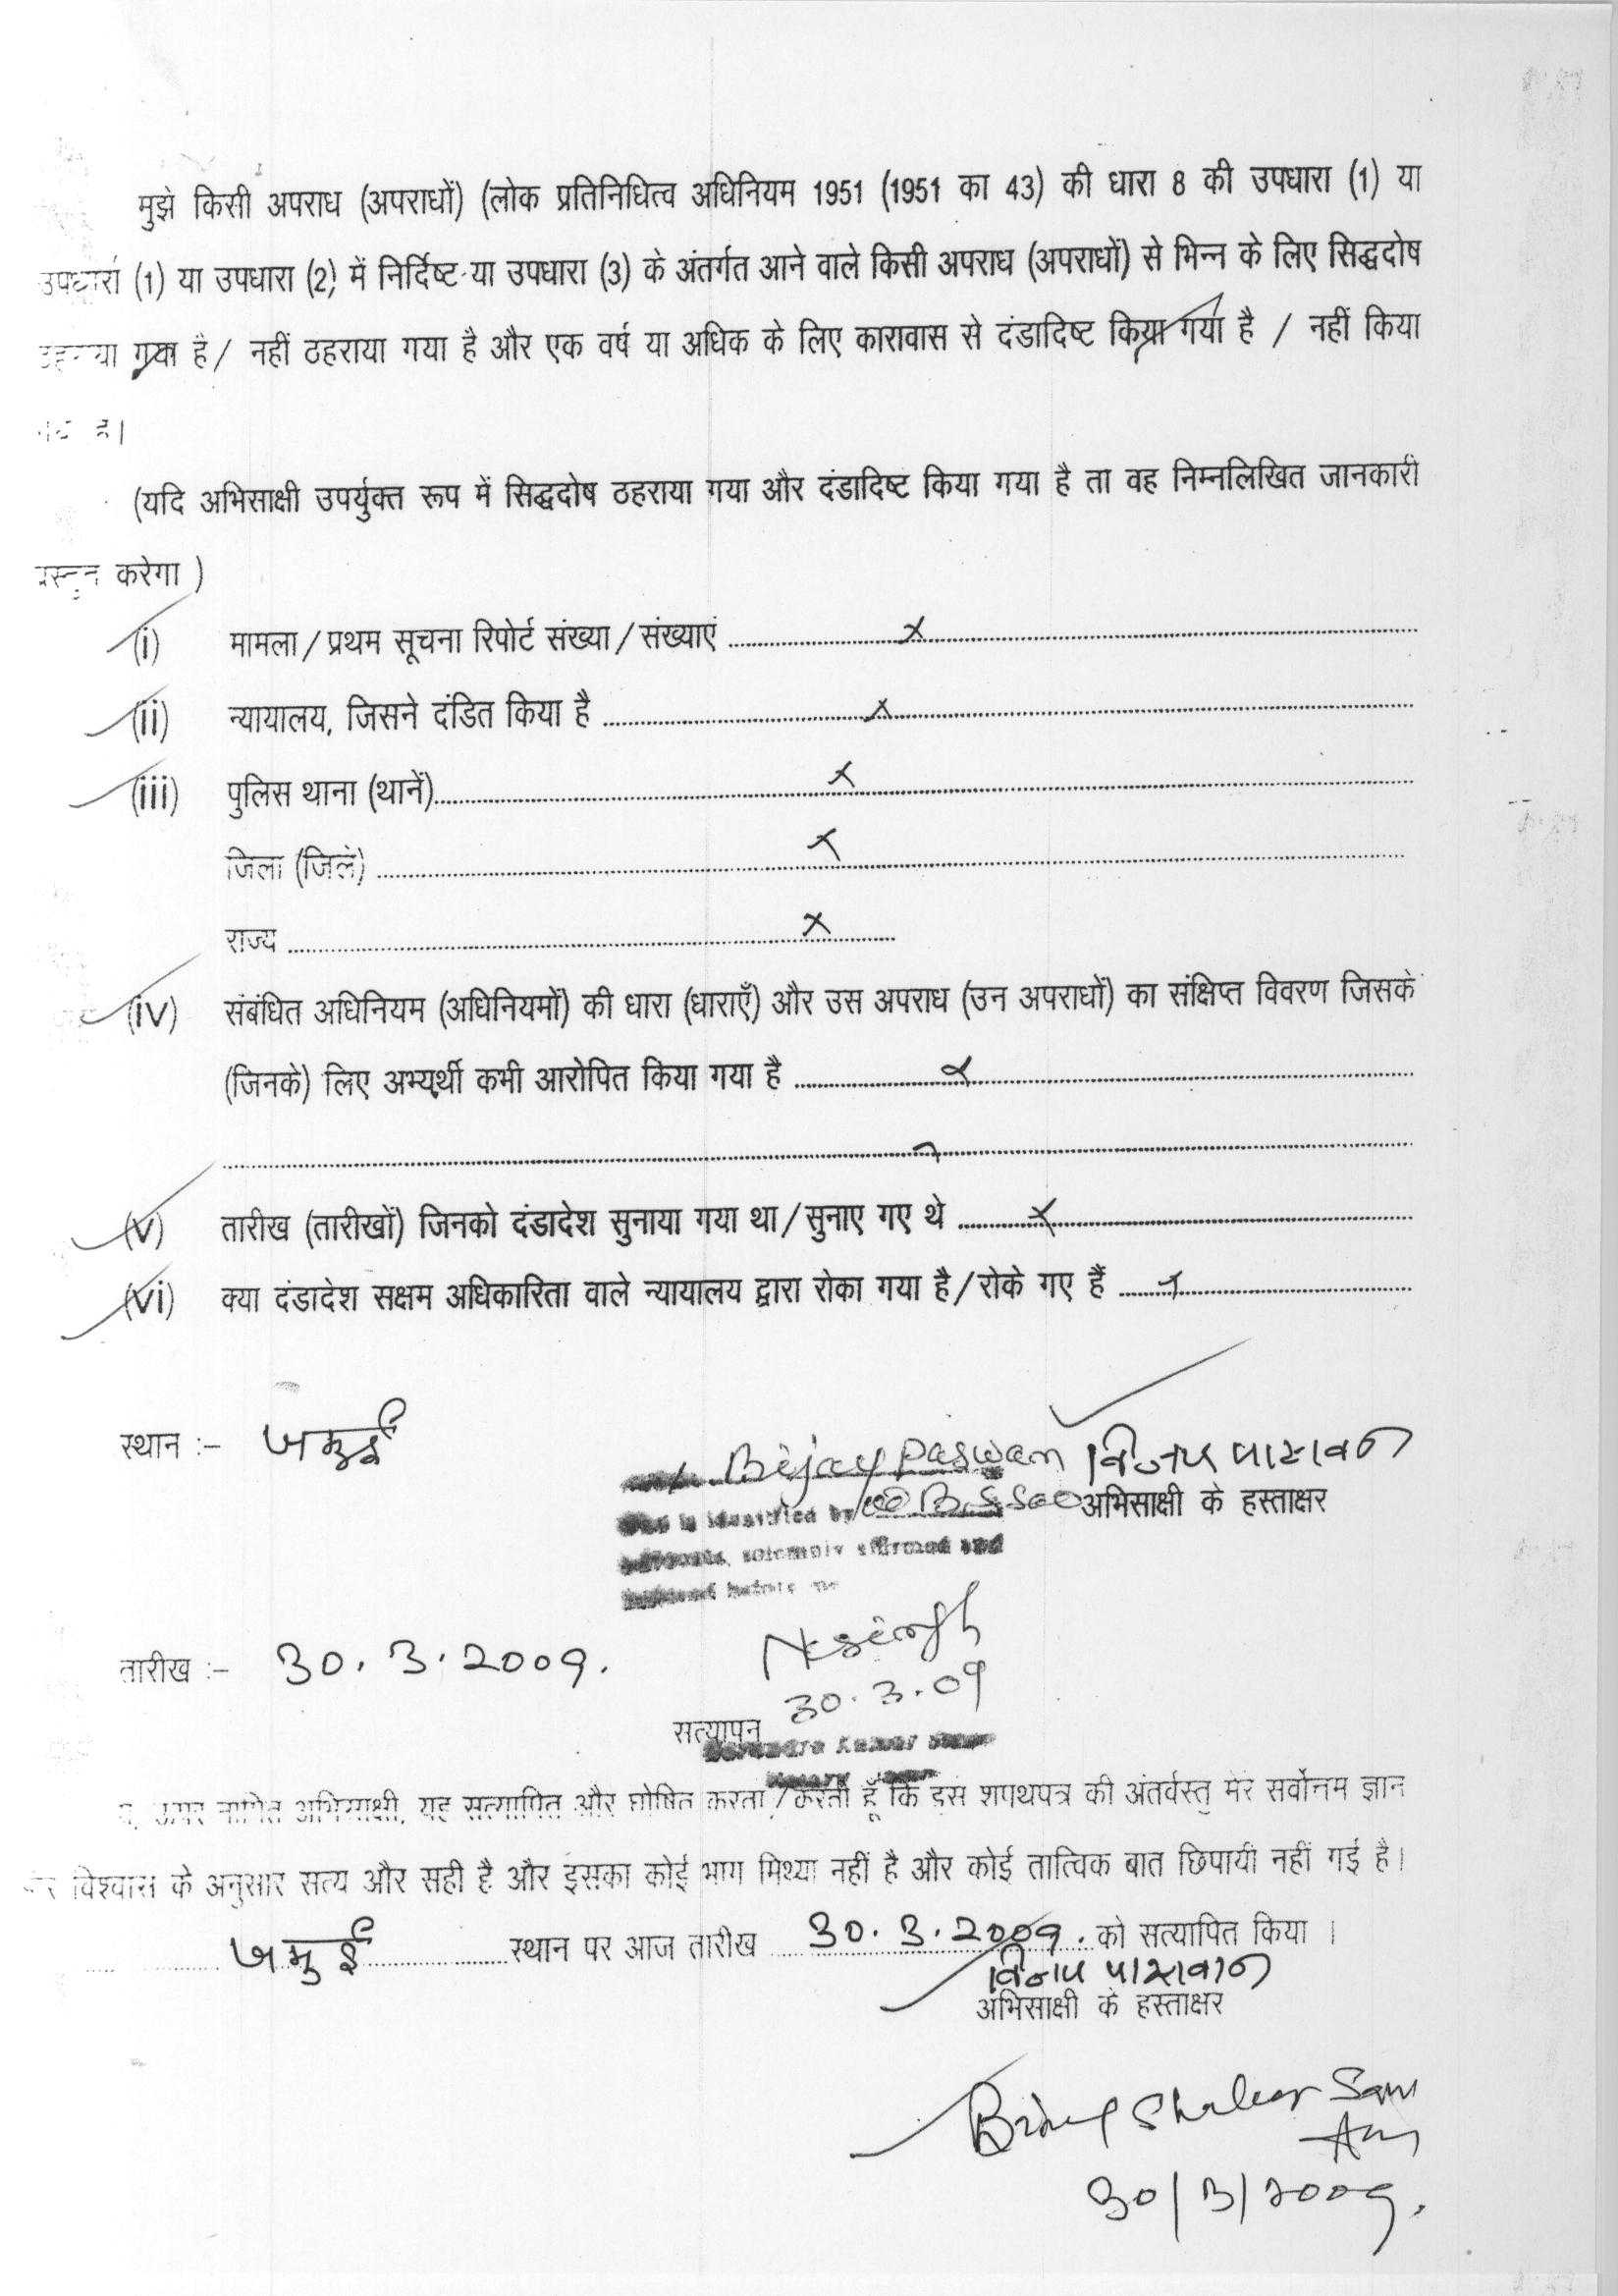 मुझे किसी अपराध (अपराधों) (लोक प्रतिनिधित्व अधिनियम 1951 (1951 का 43) की धारा 8 की उपधारा (1) या
उपधारा (1) या उपधारा (2) में निर्दिष्ट या उपधारा (3) के अंतर्गत आने वाले किसी अपराध (अपराधों) से भिन्न के लिए सिद्धदोष
ठहराया गया है / नहीं ठहराया गया है और एक वर्ष या अधिक के लिए कारावास से दंडादिष्ट किया गया है / नहीं किया
है।
(यदि अभिसाक्षी उपर्युक्त रूप में सिद्धदोष ठहराया गया और दंडादिष्ट किया गया है ता वह निम्नलिखित जानकारी
प्रस्तुत करेगा )
(i) मामला / प्रथम सूचना रिपोर्ट संख्या / संख्याएं x
(ii) न्यायालय, जिसने दंडित किया है x
(iii) पुलिस थाना (थानें) x
जिला (जिले) x
राज्य x
(iv) संबंधित अधिनियम (अधिनियमों) की धारा (धाराएँ) और उस अपराध (उन अपराधों) का संक्षिप्त विवरण जिसके
(जिनके) लिए अभ्यर्थी कभी आरोपित किया गया है x
(v) तारीख (तारीखों) जिनको दंडादेश सुनाया गया था / सुनाए गए थे x
(vi) क्या दंडादेश सक्षम अधिकारिता वाले न्यायालय द्वारा रोका गया है / रोके गए हैं x
स्थान :- जमुई
Bijay Paswan विजय पासवान
is identified by B. S. Sao अभिसाक्षी के हस्ताक्षर
solemnly affirmed and
before me
तारीख :- 30.3.2009.
N K Singh
30.3.09
सत्यापन
Kumar
Notary
ऊपर नामित अभिसाक्षी, यह सत्यापित और घोषित करता / करती हूँ कि इस शपथपत्र की अंतर्वस्तु मेरे सर्वोत्तम ज्ञान
और विश्वास के अनुसार सत्य और सही है और इसका कोई भाग मिथ्या नहीं है और कोई तात्विक बात छिपायी नहीं गई है।
जमुई स्थान पर आज तारीख 30.3.2009. को सत्यापित किया ।
विजय पासवान
अभिसाक्षी के हस्ताक्षर
Shaker Sao
30/3/2009.